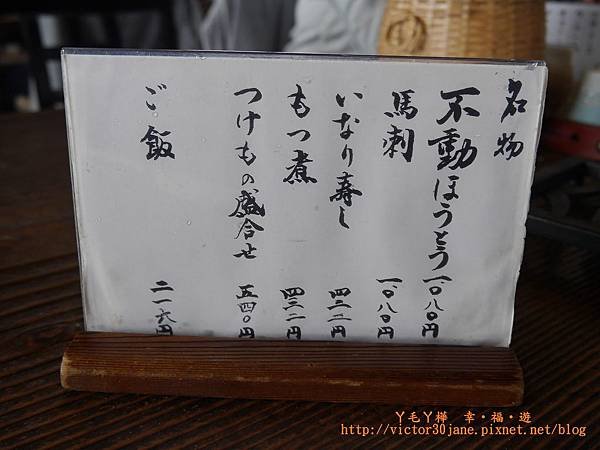 名物
不動ほうとう 一、〇八〇円
馬刺 一、〇八〇円
いなり寿し 四三二円
もつ煮 四三二円
つけもの盛合せ 五四〇円
ご飯 二一六円
ㄚ毛ㄚ樺 幸‧福‧遊
http://victor30jane.pixnet.net/blog